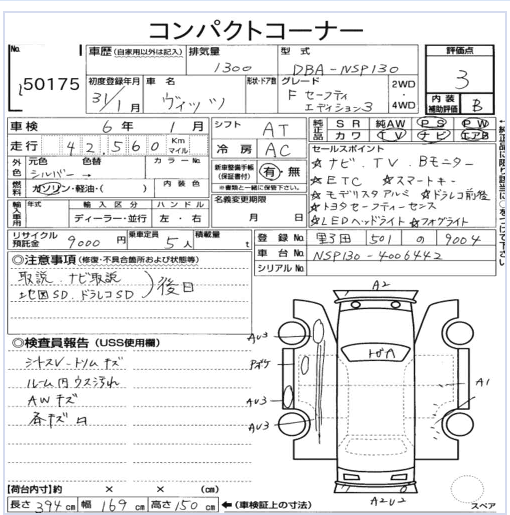 コンパクトコーナー
No. 50175
車歴 (自家用以外は記入) 排気量 1300 型式 DBA-NSP130
評価点 3
初度登録年月 31/1月 車名 ヴィッツ 形状・ドア数 グレード F セーフティ エディション3 2WD・4WD
内装補助評価 B
車検 6年 1月 シフト AT
純正品 SR 純AW PS PW
カワ TV ナビ エアB
走行 42,560 Km マイル 冷房 AC
セールスポイント
外色 元色 シルバー → 色替 カラーNo.
新車整備手帳(保証書付) 有・無
※書類と一緒に保管下さい。
☆ナビ、TV、Bモニター
☆ETC ☆スマートキー
燃料 ガソリン・軽油・( ) 内装色
☆モデリスタアルミ ☆ドラレコ前後
輸入車用 年式 輸入区分 ディーラー・並行 ハンドル 左・右
名義変更期限 月 日
☆トヨタセーフティーセンス
☆LEDヘッドライト ☆フォグライト
リサイクル預託金 9000円 乗車定員 5人 積載量 t
登録No. 501 の 9004
車台No. NSP130-4006442
シリアルNo.
◎注意事項 (修復・不具合箇所および状態等)
取説、ナビ取説
地図SD、ドラレコSD
後日
◎検査員報告 (USS使用欄)
ルーム内ウス汚れ
AWキズ
A2
AU3
AU3
AU3
A1
A2U2
【荷台内寸】約 × × (cm)
長さ 394cm 幅 169cm 高さ 150cm ←(車検証上の寸法)
スペア